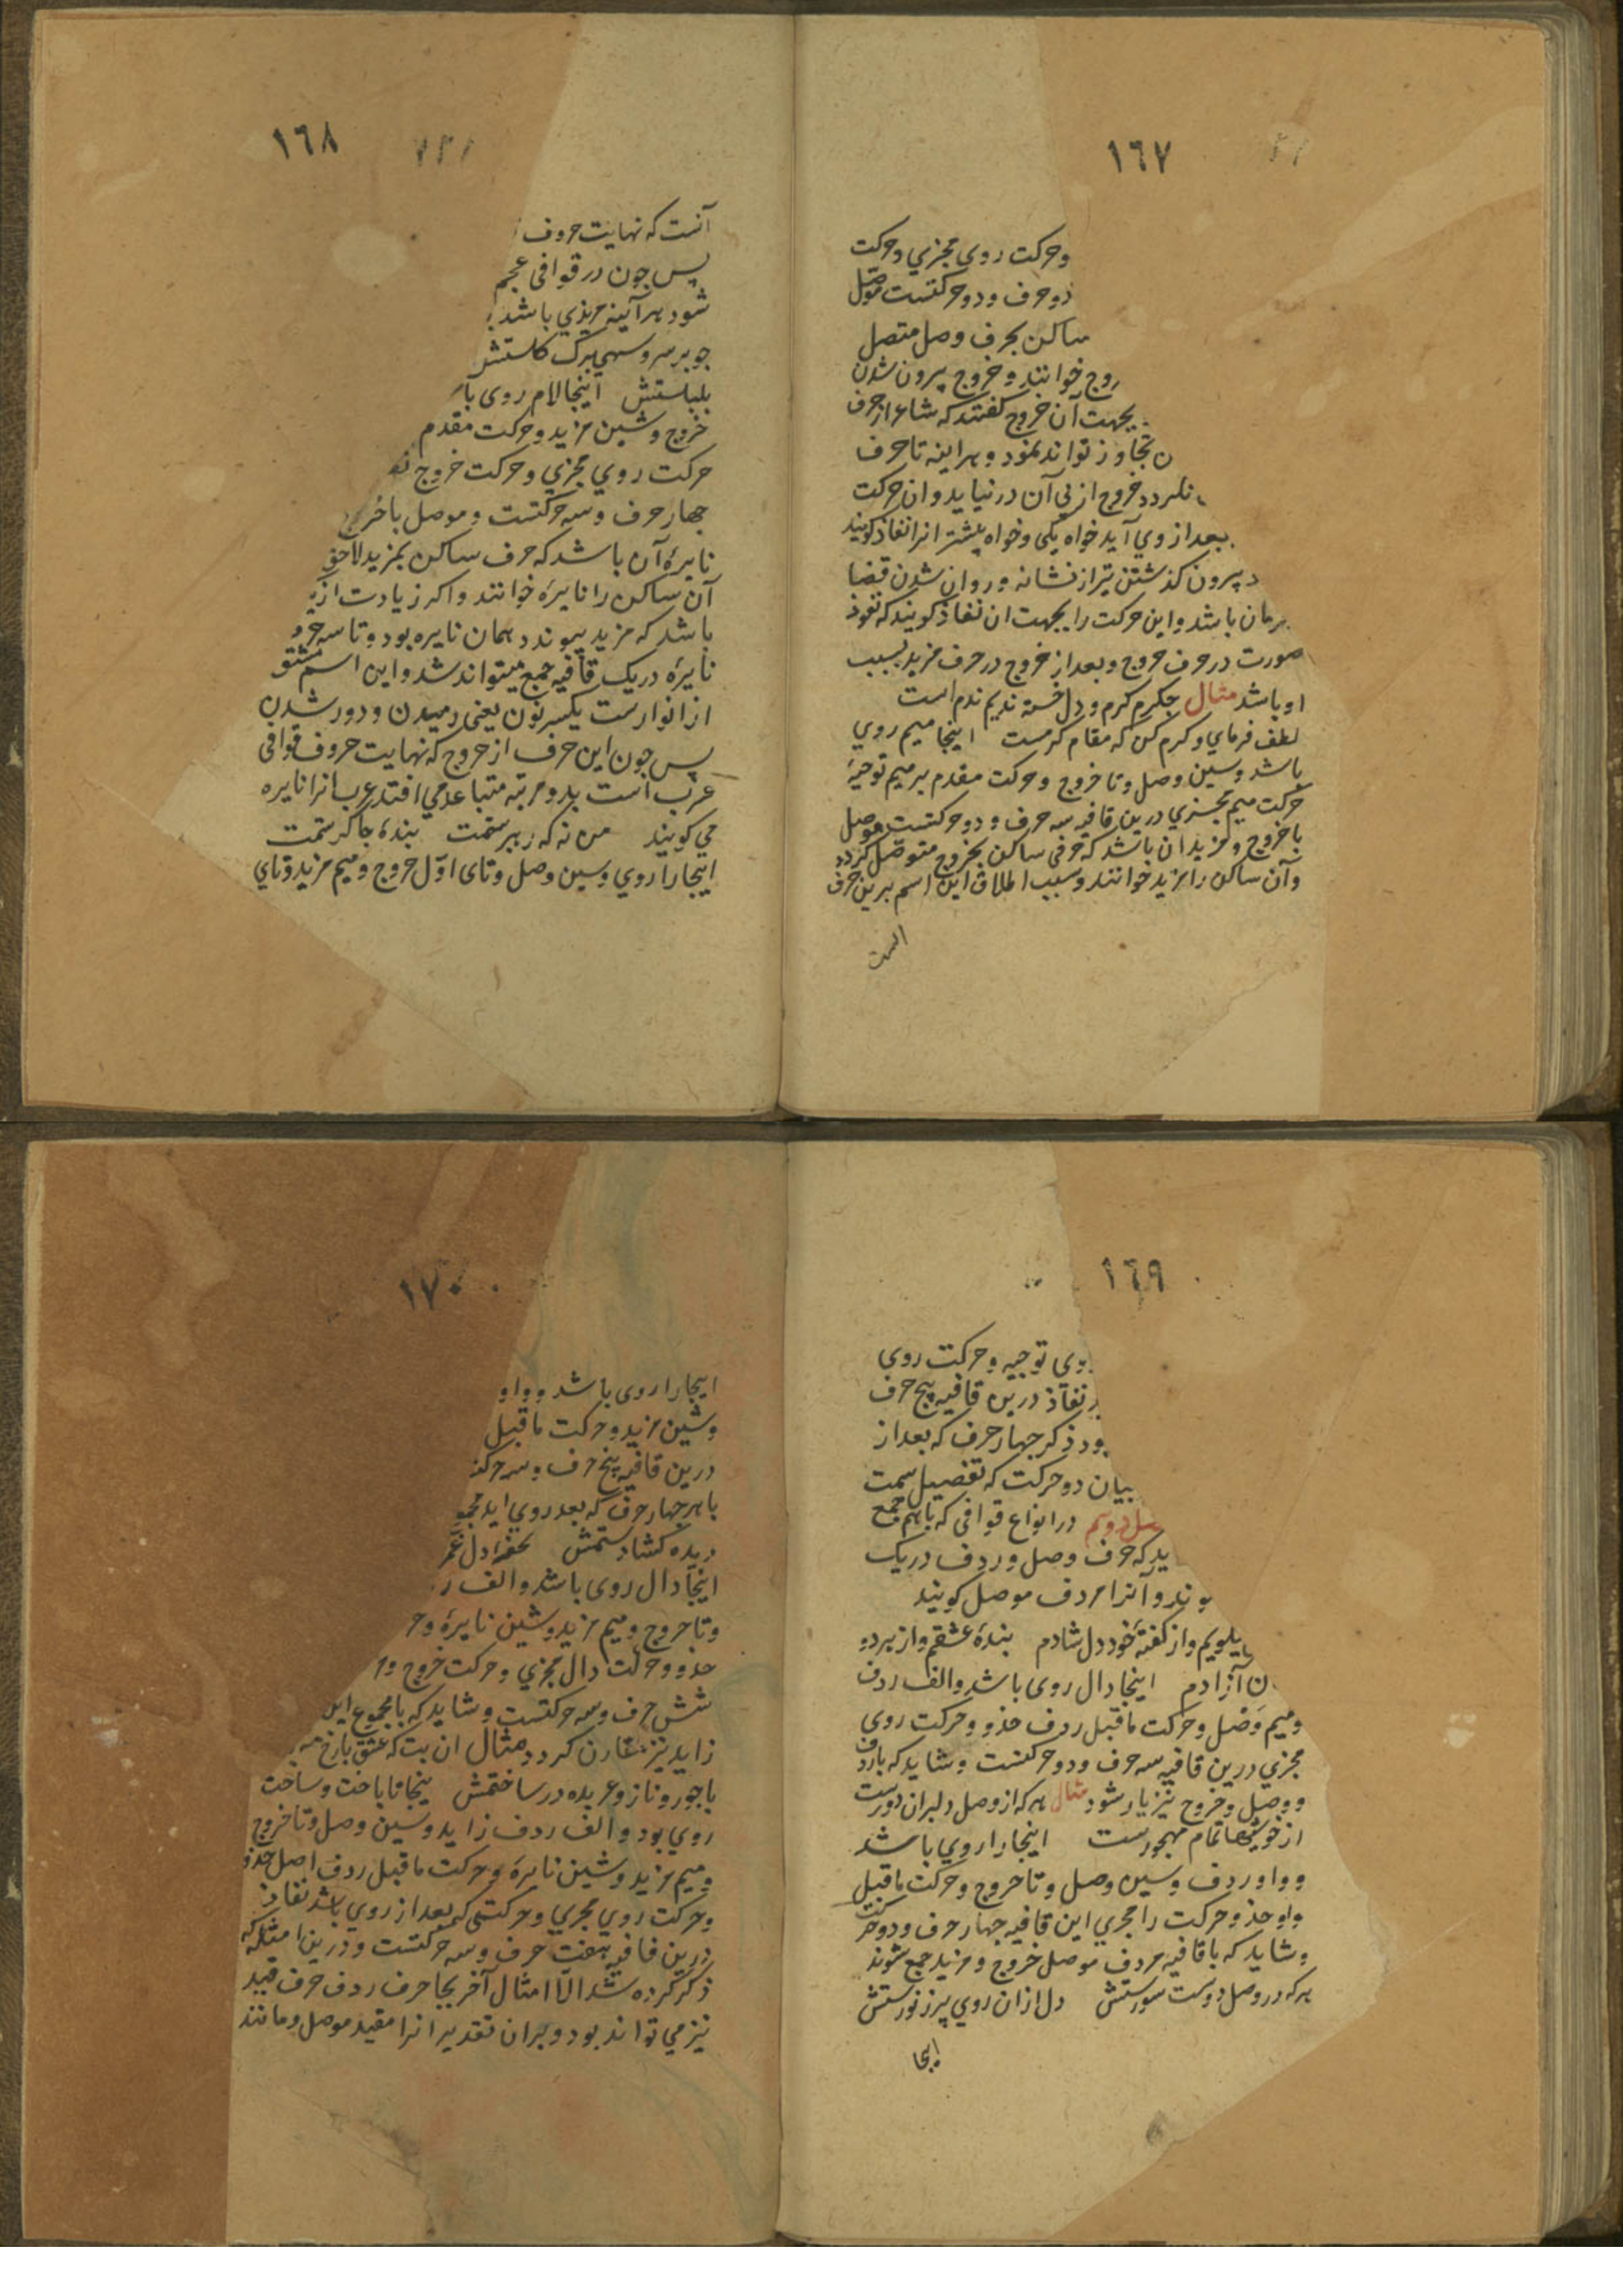 ١٦٧
وحرکت روی مجزي وحرکت
دوحرف ودوحرکتست موصل
ساکن بحرف وصل متصل
روج خوانند و خروج بیرون شدن
بجهت آن خروج گفتند که شاعر از حرف
ن تجاوز تواند نمود و هراینه تا حرف
نکردد خروج از پی آن درنیاید و ان حرکت
بعد از وي آید خواه یکی وخواه بیشتر انرا نفاذ کویند
د بیرون کذشتن تیر از نشانه و روان شدن قضا
رمان باشد و این حرکت را بجهت ان نفاذ کویند که نفوذ
صورت در حرف خروج و بعد از خروج در حرف مزید بسبب
او باشد مثال جکرم کرم و دل خسته ندیم ندم است
لطف فرمای و کرم کن که مقام کرمست اینجا میم روي
باشد وسین وصل وتا خروج وحرکت مقدم بر میم توجیه
حرکت میم مجزي درین قافیه سه حرف و دو حرکتست موصل
با خروج و مزید ان باشد که حرفی ساکن بخروج متوصل کردد
وآن ساکن را مزید خوانند و سبب اطلاق این اسم برین حرف
١٦٨
آنست که نهایت حروف
پس جون در قوافی عجم
شود هرآینه مزیدي باشد
جو بر سرو سهی برک کلستش
بلبلستش اینجا لام روی با
خروج وشین مزید وحرکت مقدم
حرکت روي مجزي وحرکت خروج نه
جهار حرف و سه حرکتست وموصل با خروج
نایره آن باشد که حرف ساکن بمزید لاحق
آن ساکن را نایره خوانند واکر زیادت از
باشد که مزید پیوندد همان نایره بود و تا سه حر
نایره در یک قافیه جمع میتواند شد و این اسم مشتق
از انوارست بکسر نون یعنی رمیدن و دور شدن
پس جون این حرف از خروج که نهایت حروف قوافی
عرب است بدو مرتبه متباعد می افتد عرب انرا نایره
می کویند من نه که رهبر ستمت بنده جاکر ستمت
اینجا را روي وسین وصل وتاى اوّل خروج ومیم مزید وتاي
١٦٩
وي توجیه وحرکت روی
نفاذ درین قافیه پنج حرف
بود ذکر جهار حرف که بعد از
بیان دو حرکت که تفصیل سمت
صل دوم در انواع قوافی که باهم جمع
ید که حرف وصل وردف در یک
وند و آنرا مردف موصل کویند
یکویم و از کفته خود دل شادم بنده عشقم و از هر دو
ن آزادم اینجا دال روی باشد والف ردف
ومیم وصل وحرکت ماقبل ردف حذو وحرکت روی
مجزي درین قافیه سه حرف ودو حرکتست و شاید که با ردف
ووصل وخروج نیز یار شود مثال هر که از وصل دلبران دورست
از خوشیها تمام مهجورست اینجا را روي باشد
وواو ردف وسین وصل وتا خروج وحرکت ماقبل
واو حذو حرکت را مجزي این قافیه جهار حرف ودو حرکت
وشاید که با قافیه مردف موصل خروج و مزید جمع شوند
هرکه در وصل دوست سورستش دل از ان روي پر ز نورستش
١٧٠
اینجا را روی باشد وواو
وشین مزید وحرکت ماقبل
درین قافیه پنج حرف وسه حرکت
با هر جهار حرف که بعد روي اید
دیده کشادستمش تحفه دل
اینجا دال روی باشد والف ر
وتا خروج ومیم مزید وشین نایره وحر
حذو وحرکت دال مجزي وحرکت خروج و
شش حرف وسه حرکتست وشاید که با مجموع این
زاید نیز مقارن کردد مثال ان بت که عشق با رخ
با جور و ناز و عربده در ساختمش اینجا تا باخت وساخت
روي بود والف ردف زاید وسین وصل وتا خروج
ومیم مزید وشین نایره وحرکت ماقبل ردف اصل حذو
وحرکت روي مجزي وحرکتی که بعد از روي باشد نفاذ
درین قافیه هفت حرف وسه حرکتست ودرین امثله که
ذکر کرده شد الّا امثال آخر بجا حرف ردف حرف قید
نیز می تواند بود و بران تقدیر انرا مقید موصل ومانند